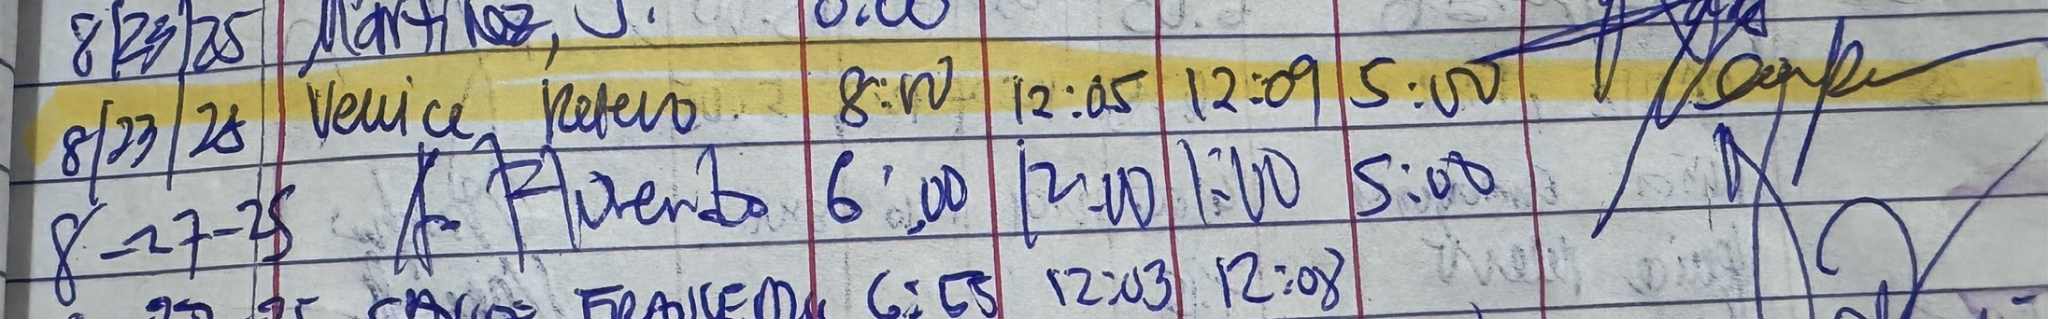 8/23/25 Martinez, J. 8:00
8/23/25 Venice, Retero 8:00 12:05 12:09 5:00
8-27-25 A. Florento 6:00 12:00 1:00 5:00
6:55 12:03 12:08